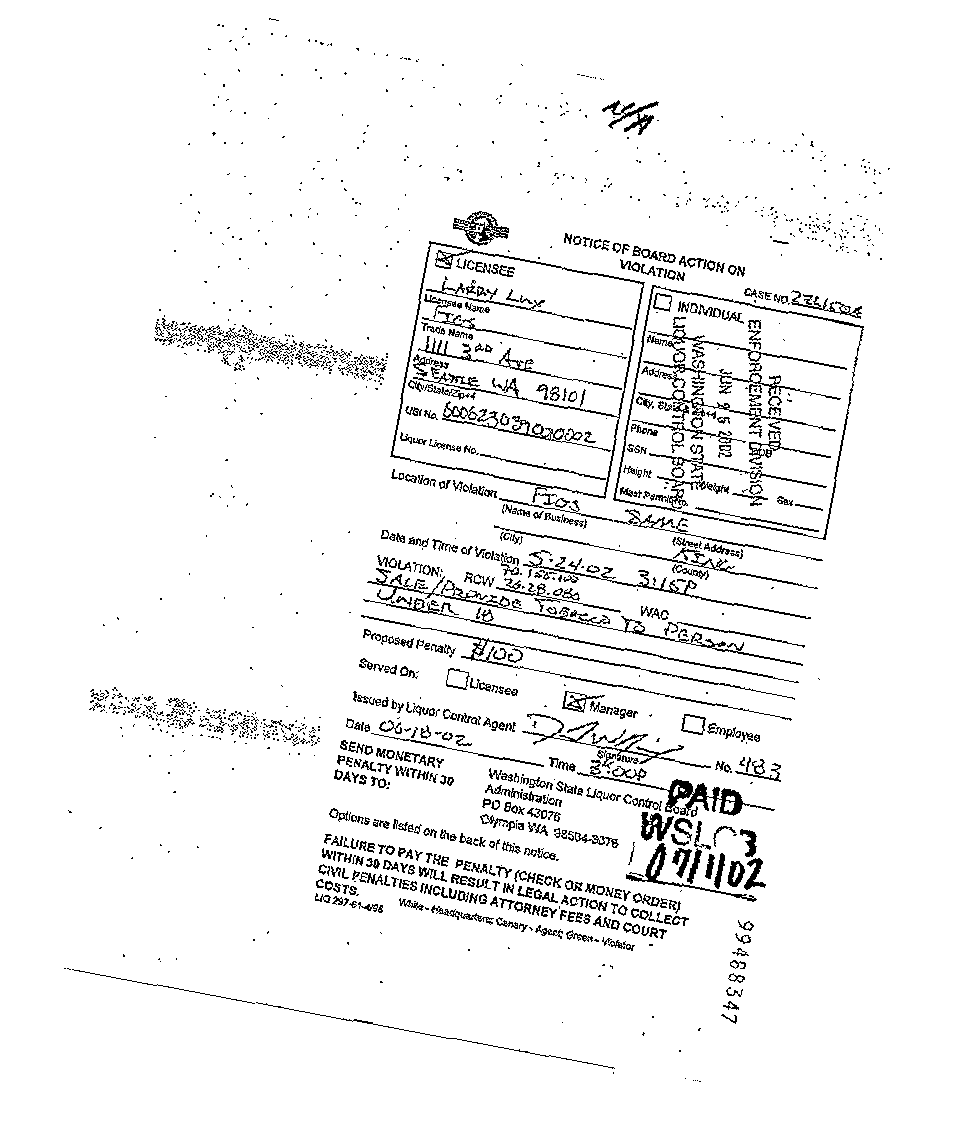 NOTICE OF BOARD ACTION ON
VIOLATION
CASE NO.
LICENSEE
LARRY LUX
Licensee Name
FIGS
Trade Name
1111 3RD AVE
Address
SEATTLE WA 98101
City/State/Zip+4
UBI No. 600623039020002
Liquor License No.
INDIVIDUAL
Name
Address
City, State
Phone
SSN
Height Weight Sex
Mast Permit No.
RECEIVED
ENFORCEMENT DIVISION
JUN 2002
WASHINGTON STATE
LIQUOR CONTROL BOARD
Location of Violation FIGS SAME
(Name of Business) (Street Address)
KING
(City) (County)
Date and Time of Violation 5-24-02 3:15P
70.155.100
VIOLATION: RCW 26.28.080 WAC
SALE/PROVIDE TOBACCO TO PERSON
UNDER 18
Proposed Penalty $100
Served On: Licensee Manager Employee
Issued by Liquor Control Agent No. 483
Signature
Date 06-18-02 Time 3:00P
SEND MONETARY
PENALTY WITHIN 30
DAYS TO:
Washington State Liquor Control Board
Administration
PO Box 43076
Olympia WA 98504-3076
PAID
WSLCB
07/1/02
Options are listed on the back of this notice.
FAILURE TO PAY THE PENALTY (CHECK OR MONEY ORDER)
WITHIN 30 DAYS WILL RESULT IN LEGAL ACTION TO COLLECT
CIVIL PENALTIES INCLUDING ATTORNEY FEES AND COURT
COSTS.
LIQ 297-61-4/98 White - Headquarters; Canary - Agent; Green - Violator
99488347